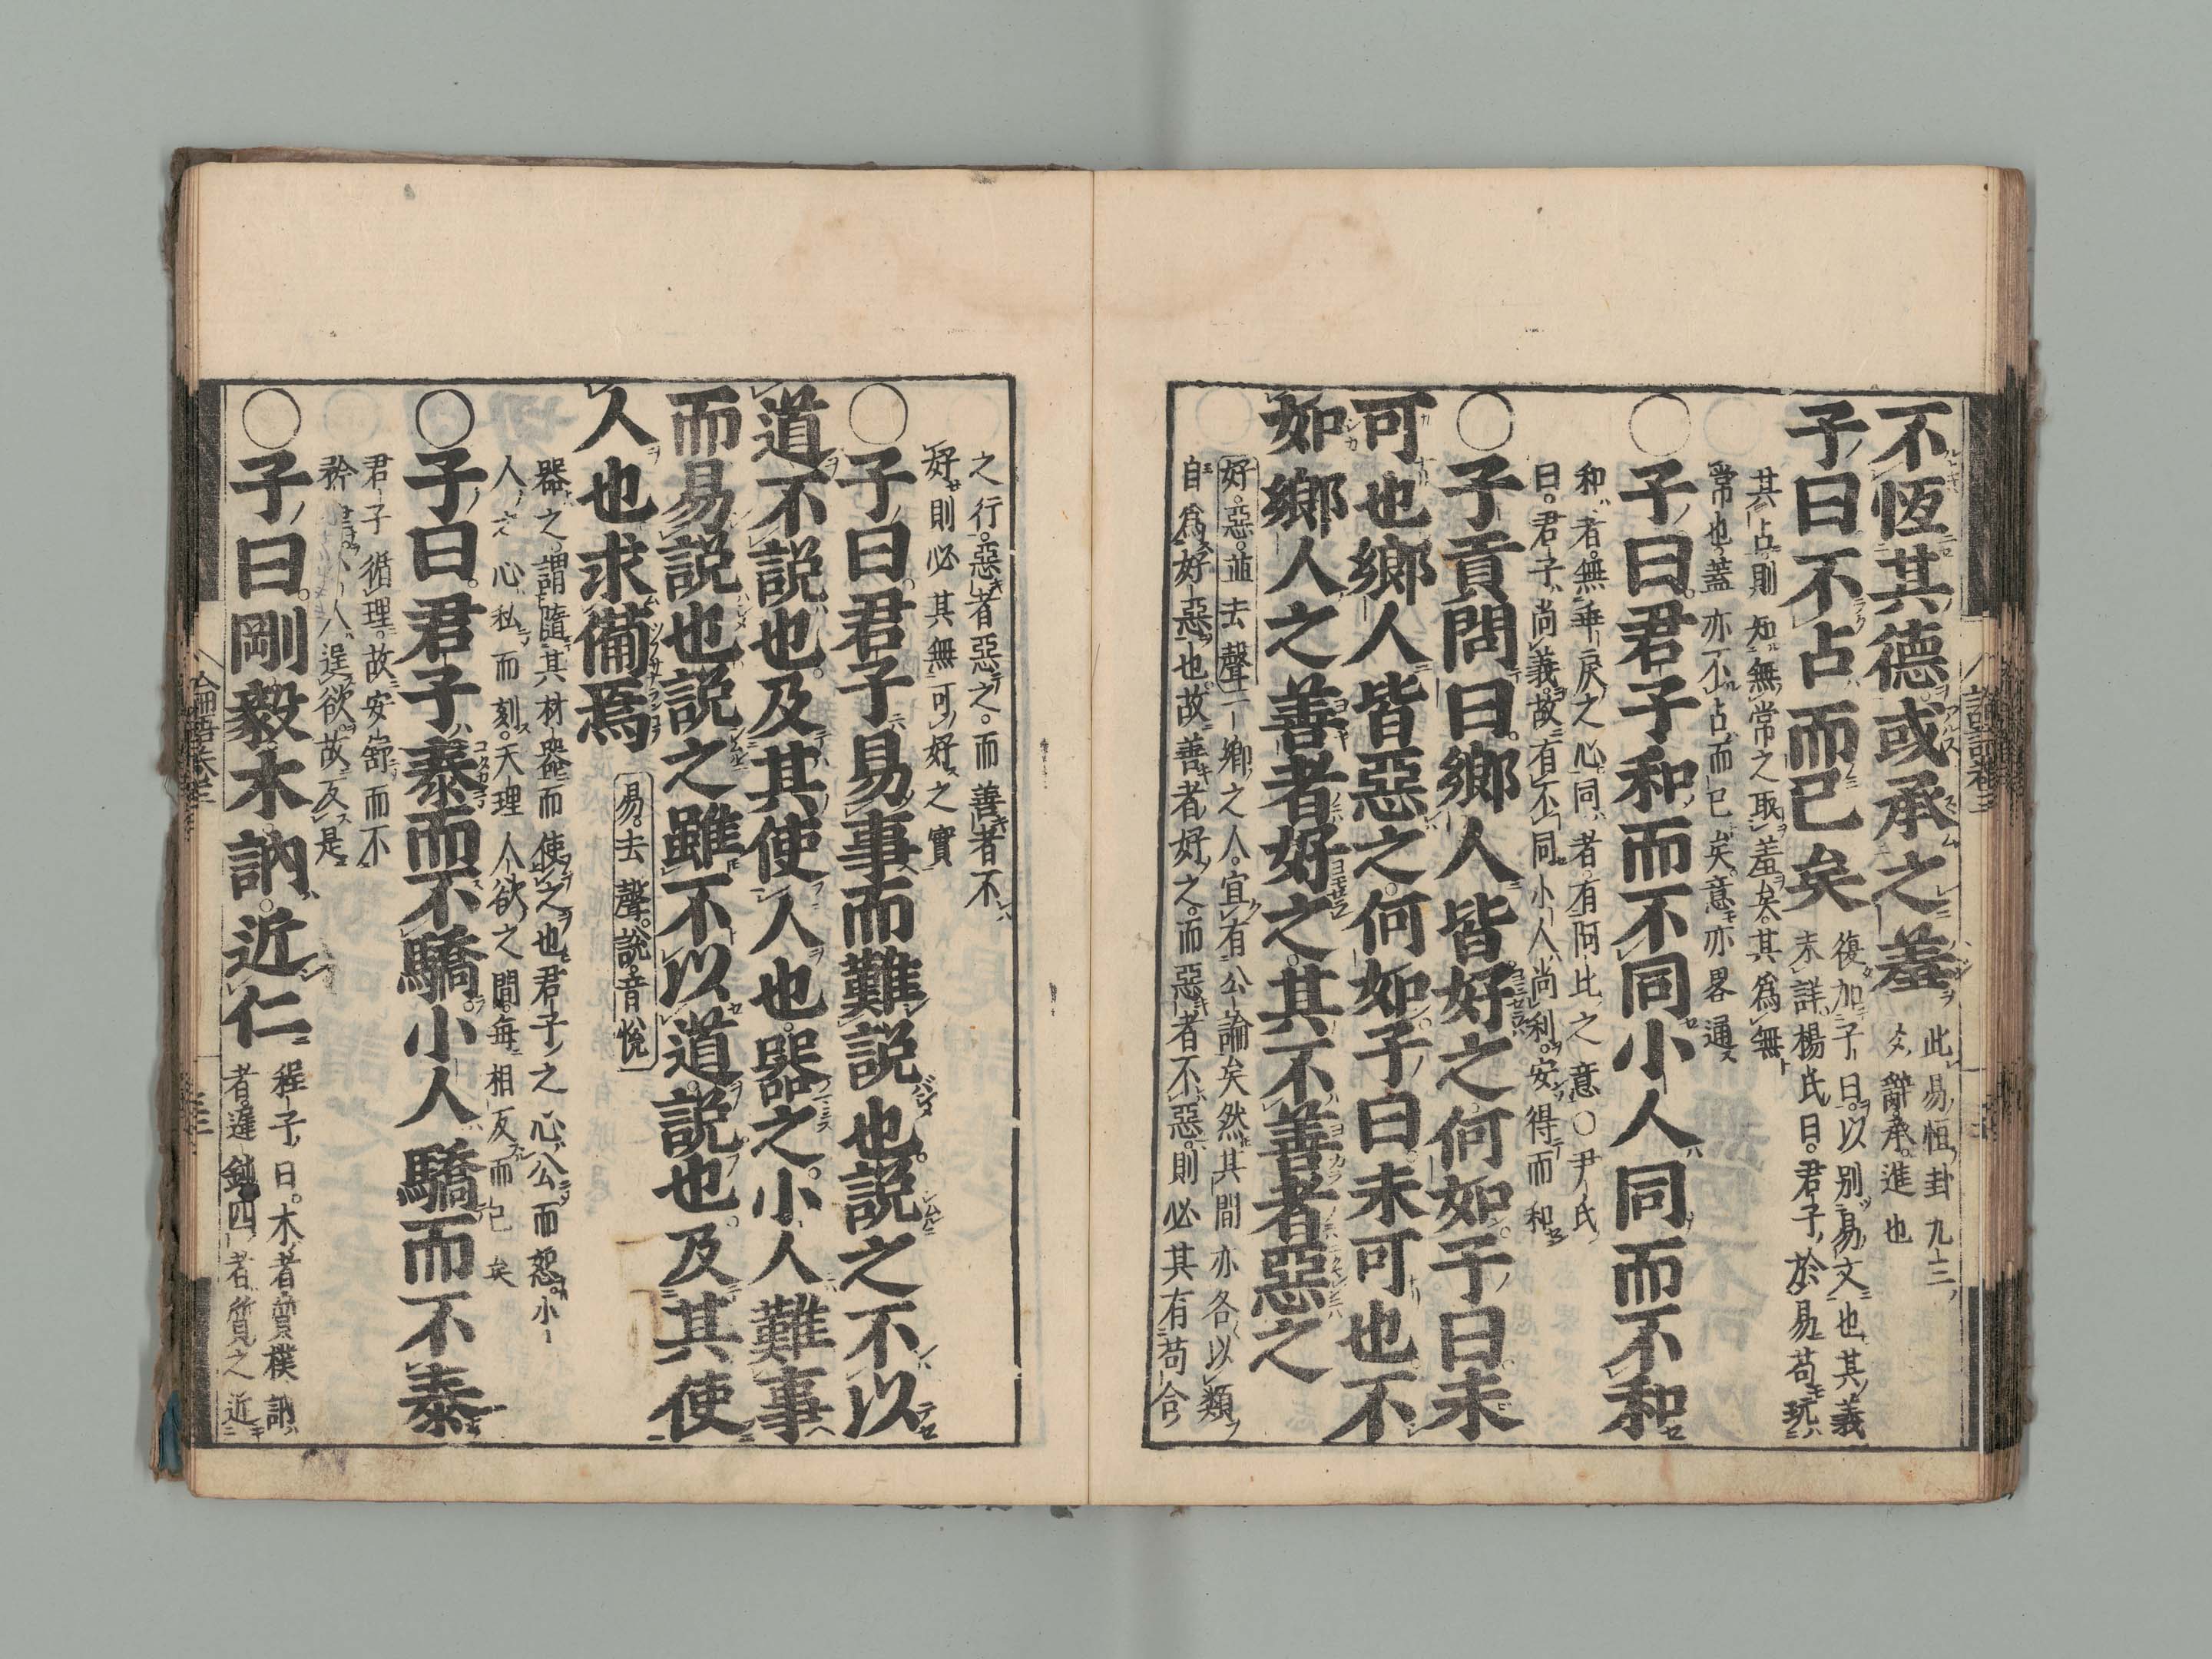 不恆其德或承之羞
此易恒卦九三
爻辭承進也
子曰不占而已矣
復加子曰以別易文也其義
未詳楊氏曰君子於易苟玩
其占則知無常之取羞矣其爲無
常也蓋亦不占而已矣意亦畧通
○子曰君子和而不同小人同而不和
和者無乖戾之心同者有阿比之意○尹氏
曰君子尚義故有不同小人尚利安得而和
○子貢問曰鄉人皆好之何如子曰未
可也鄉人皆惡之何如子曰未可也不
如鄉人之善者好之其不善者惡之
好惡並去聲一鄉之人宜有公論矣然其間亦各以類
自爲好惡也故善者好之而惡者不惡則必其有苟合
之行惡者惡之而善者不
好則必其無可好之實
○子曰君子易事而難説也説之不以
道不説也及其使人也器之小人難事
而易説也説之雖不以道説也及其使
人也求備焉
易去聲説音悅
器之謂隨其材器而使之也君子之心公而恕小
人之心私而刻天理人欲之間每相反而已矣
○子曰君子泰而不驕小人驕而不泰
君子循理故安舒而不
矜 人逞欲故反是
○子曰剛毅木訥近仁
程子曰木者質樸訥
者遲鈍四者質之近